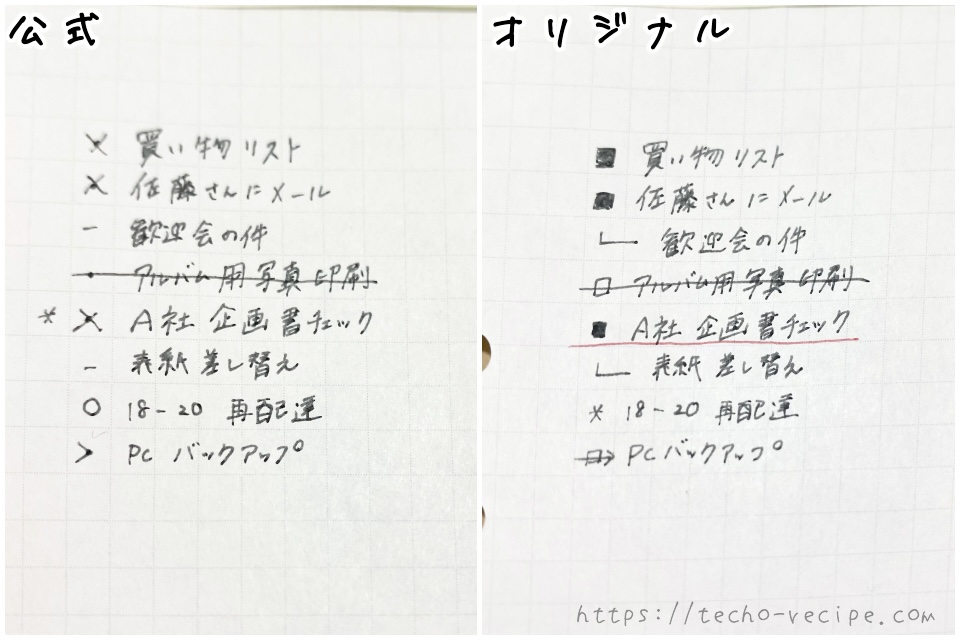 公式
× 買い物リスト
× 佐藤さんにメール
– 歓迎会の件
• アルバム用写真印刷
* × A社 企画書チェック
– 表紙差し替え
○ 18-20 再配達
> PC バックアップ
オリジナル
■ 買い物リスト
■ 佐藤さんにメール
歓迎会の件
□ アルバム用写真印刷
■ A社 企画書チェック
表紙差し替え
* 18-20 再配達
PCバックアップ
https://techo-recipe.com